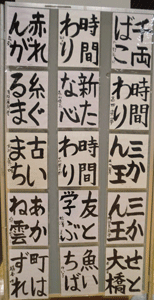 千両
ばこ
時間
わり
赤れ
んが
時間
わり
新た
な心
糸ぐ
るま
三か
ん王
時間
わり
古い
まち
三か
ん王
友と
学ぶ
あか
ね雲
せと
大橋
魚い
ちば
町は
ずれ